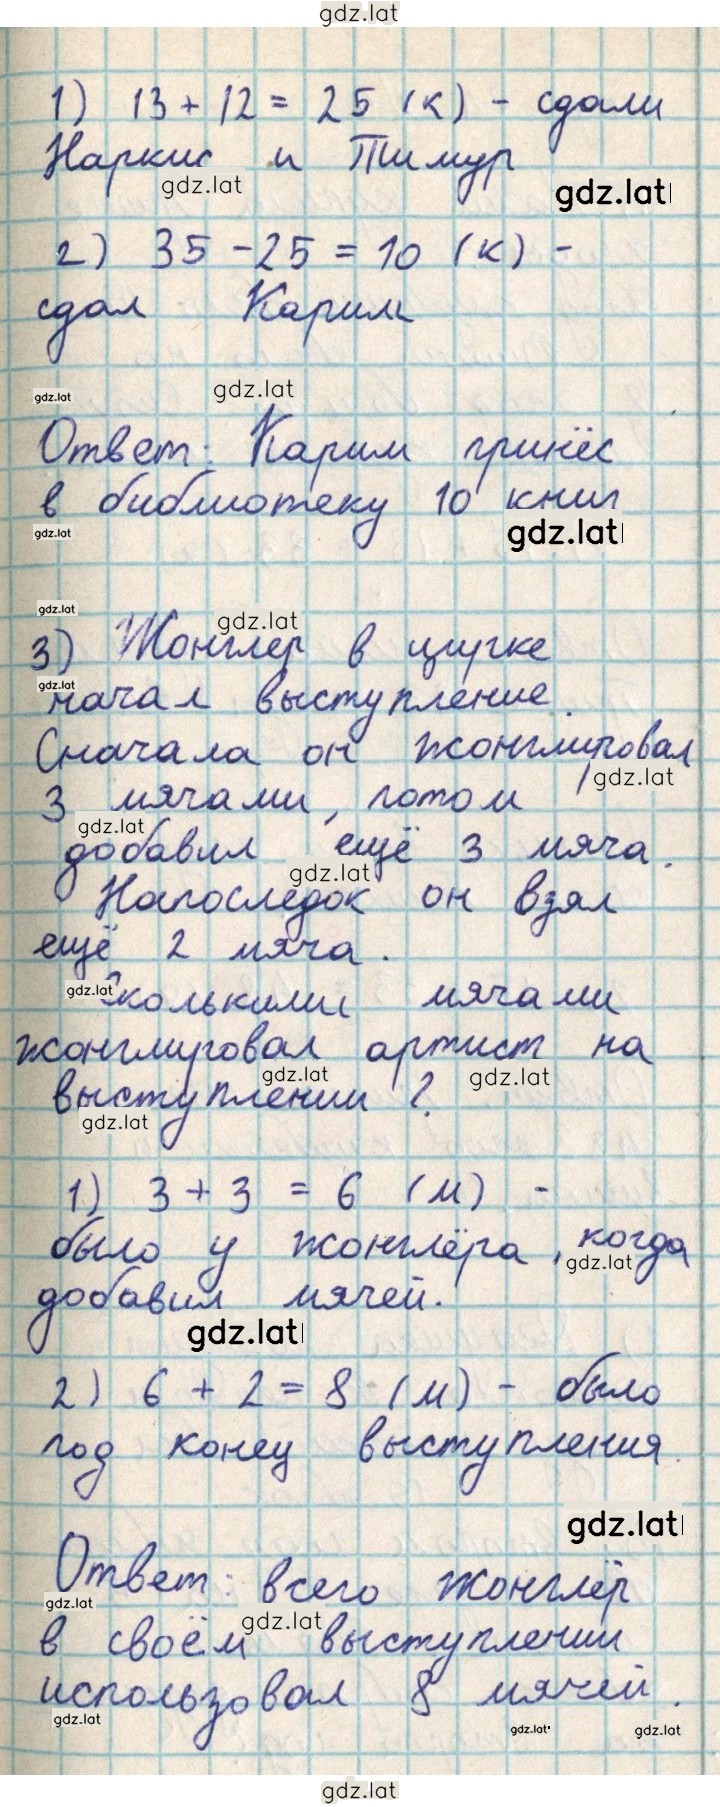 gdz.lat
1) 13 + 12 = 25 (к) - сдали
Наркис и Тимур
gdz.lat
gdz.lat
2) 35 - 25 = 10 (к) -
сдал Карим
gdz.lat
gdz.lat
Ответ: Карим принёс
в библиотеку 10 книг
gdz.lat
gdz.lat
gdz.lat
gdz.lat
3) Жонглер в цирке
gdz.lat
начал выступление.
Сначала он жонглировал
gdz.lat
3 мячами, потом
gdz.lat
добавил ещё 3 мяча.
gdz.lat
Напоследок он взял
ещё 2 мяча.
gdz.lat
Сколькими мячами
жонглировал артист на
gdz.lat
gdz.lat
выступлении?
gdz.lat
1) 3 + 3 = 6 (м) -
было у жонглёра, когда
gdz.lat
добавил мячей.
gdz.lat
2) 6 + 2 = 8 (м) - было
под конец выступления.
gdz.lat
Ответ: всего жонглёр
gdz.lat
gdz.lat
в своём выступлении
использовал 8 мячей.
gdz.lat
gdz.lat
gdz.lat
gdz.lat